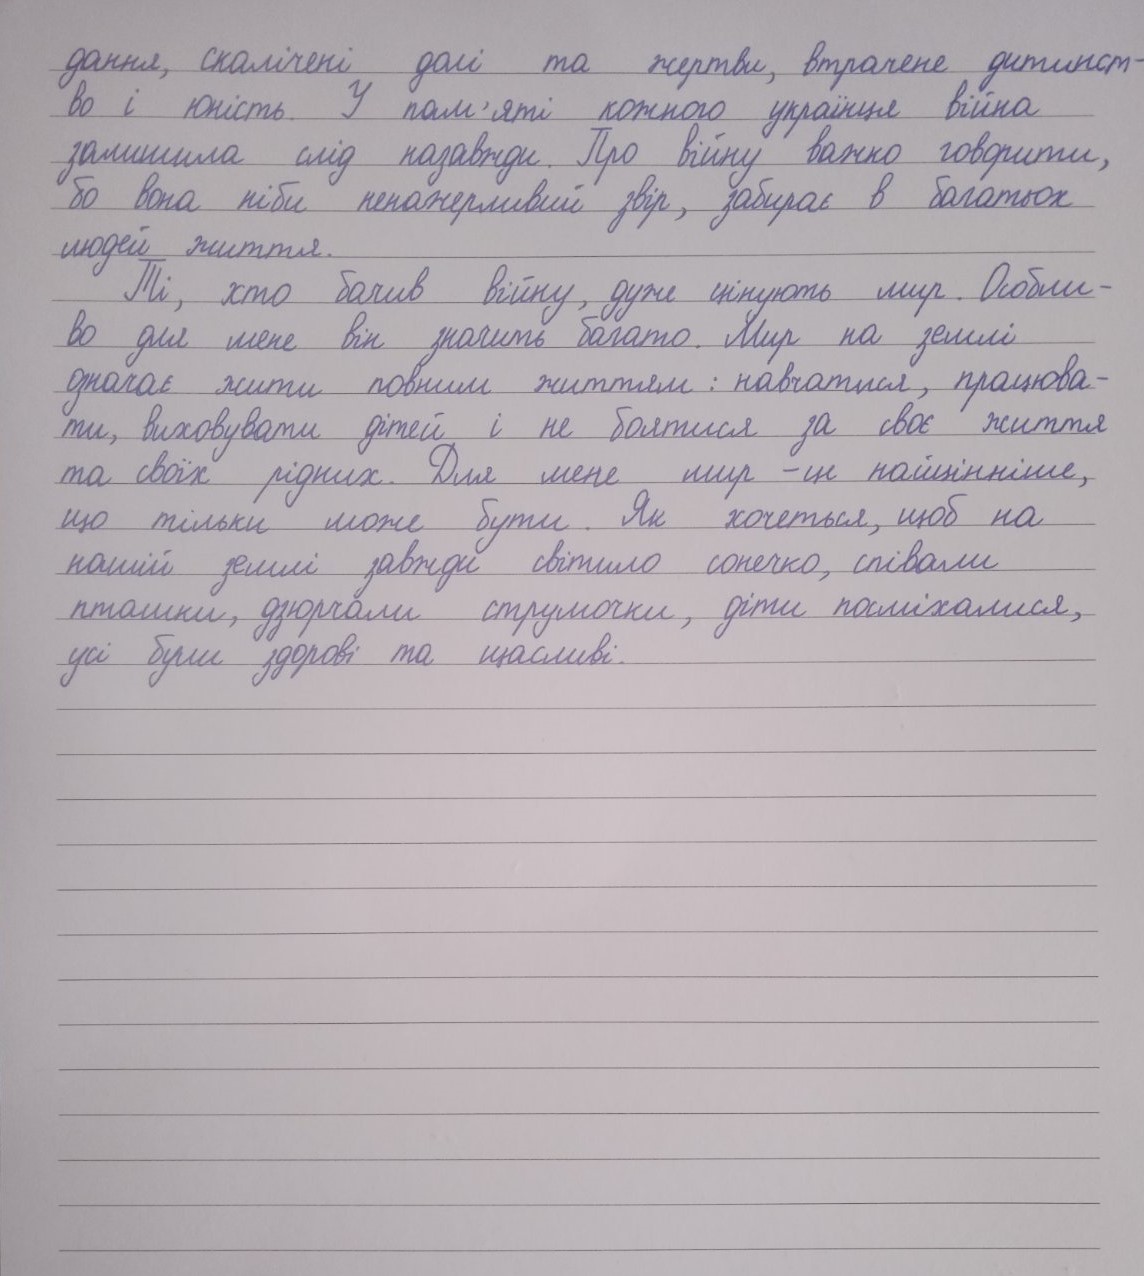 дання, скалічені долі та жертви, втрачене дитинст-
во і юність. У пам'яті кожного українця війна
залишила слід назавжди. Про війну важко говорити,
бо вона ніби ненажерливий звір, забирає в багатьох
людей життя.
Ті, хто бачив війну, дуже цінують мир. Особли-
во для мене він значить багато. Мир на землі
означає жити повним життям: навчатися, працюва-
ти, виховувати дітей і не боятися за своє життя
та своїх рідних. Для мене мир - це найцінніше,
що тільки може бути. Як хочеться, щоб на
нашій землі завжди світило сонечко, співали
пташки, дзюрчали струмочки, діти посміхалися,
усі були здорові та щасливі.